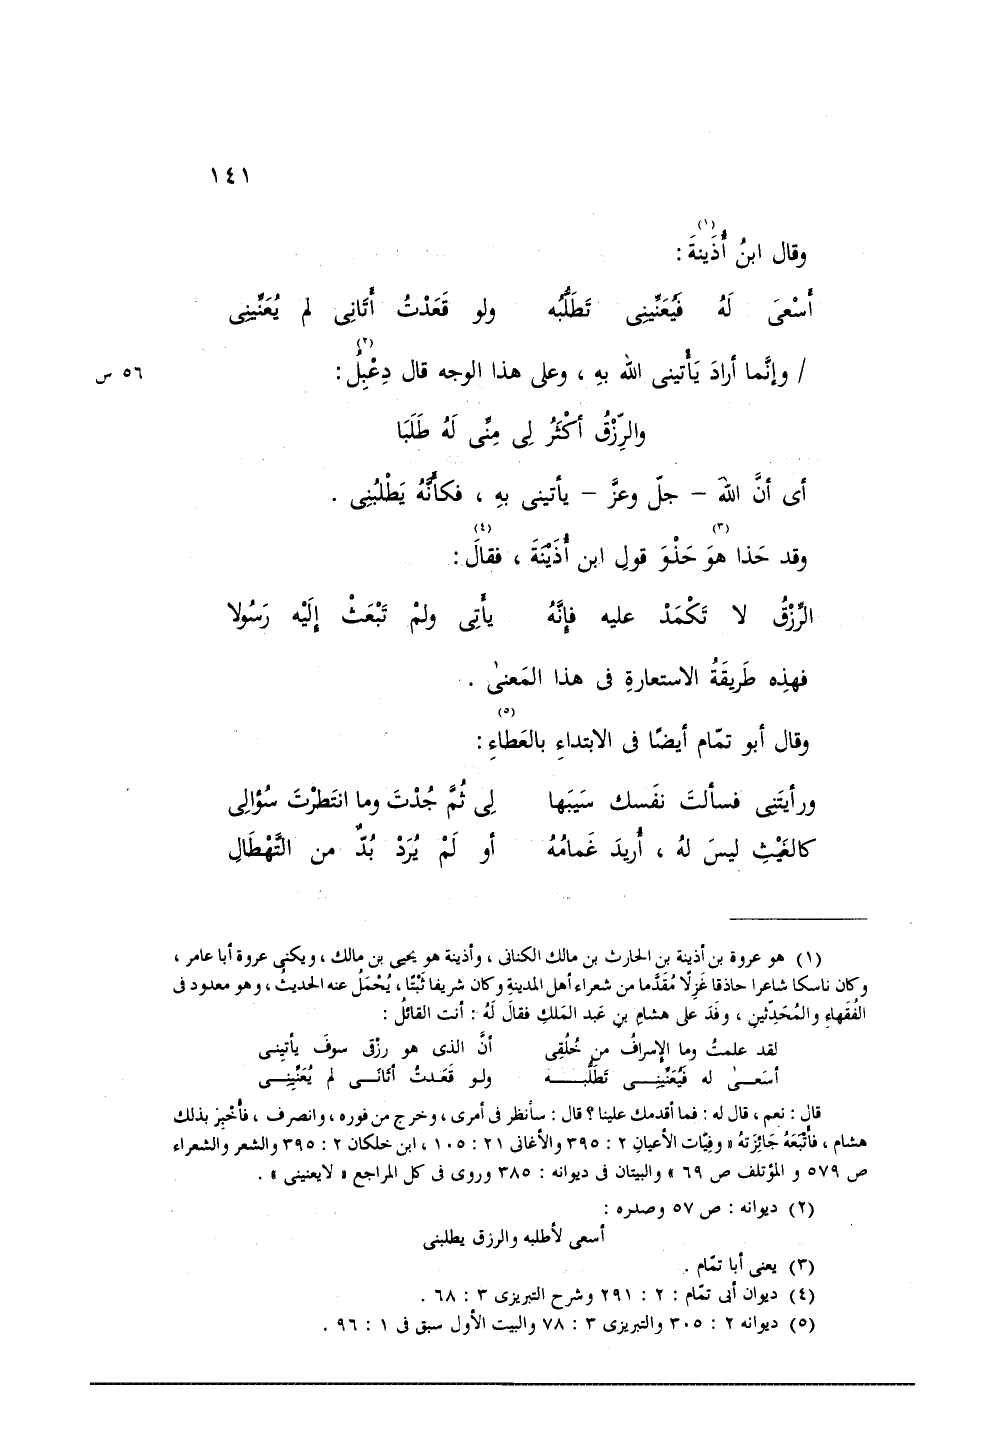 ١٤١
(١)
وقال ابنُ أُذَينةَ :
أَسْعىَ لَهُ فَيُعَنِّينِى تَطَلُّبُه ولو قَعَدْتُ أَتَانِى لم يُعَنِّينِى
/ وإنَّما أرادَ يَأْتينى اللهُ بهِ ، وعلى هذا الوجه قال دِعْبِلُ (٢) : ٥٦ س
والرِّزْقُ أكْثَرُ لِى مِنِّى لَهُ طَلَبَا
أى أنَّ اللهَ – جلّ وعزَّ – يأتينى بهِ ، فكأنَّهُ يَطْلُبُنِى .
وقد حَذا هوَ (٣) حَذْوَ قولِ ابن أُذَيْنَةَ ، فقالَ (٤) :
الرِّزْقُ لا تَكْمَدْ عليه فإنَّهُ يأْتِى ولمْ تَبْعَثْ إلَيْه رَسُولا
فهذِه طَريقَةُ الاستعارةِ فى هذا المَعنىٰ .
وقال أبو تمّام أيضًا فى الابتداءِ بالعَطاءِ (٥) :
ورأيتَنِى فسألتَ نفَسك سَيَبَها لِى ثُمَّ جُدْتَ وما انتَطرْتَ سُؤالِى
كالغَيْثِ ليسَ لهُ ، أُريدَ غَمامُهُ أو لَمْ يُرَدْ بُدٌّ من التَّهْطَالِ
(١) هو عروة بن أذينة بن الحارث بن مالك الكنانى ، وأذينة هو يحيى بن مالك ، ويكنى عروة أبا عامر ،
وكان ناسكا شاعرا حاذقا غَزِلًا مُقَدَّما من شعراء أهل المدينةِ وكان شريفا ثَبْتًا ، يُحْمَلُ عنه الحديثُ ، وهو معدود فى
الفُقهاءِ والمُحَدِّثينِ ، وفَدَ على هشامِ بنِ عبد المَلكِ فقالَ لَهُ : أنت القائلُ :
لقد علمتُ وما الإسرافُ من خُلُقِى أنَّ الذى هو رزْقى سوفَ يأتينى
أسَعىٰ له فَيُعَنِّينِى تَطَلُّبُه ولو قَعَدتُ أتَانَى لم يُعَنِّينِى
قال : نعم ، قال له : فما أقدمك علينا ؟ قال : سأنظر فى أمرى ، وخرج من فوره ، وانصرف ، فأُخْبِرَ بذلك
هشام ، فأتْبَعَهُ جَائِزَتهُ « وفيّات الأعيانِ ٢ : ٣٩٥ والأغانى ٢١ : ١٠٥ ، ابن خلكان ٢ : ٣٩٥ والشعر والشعراء
ص ٥٧٩ و المؤتلف ص ٦٩ » والبيتان فى ديوانه : ٣٨٥ وروى فى كل المراجع « لايعنينى » .
(٢) ديوانه : ص ٥٧ وصدره :
أسعى لأطلبه والرزق يطلبنى
(٣) يعنى أبا تمّام .
(٤) ديوان أبى تمّام : ٢ : ٢٩١ وشرح التبريزى ٣ : ٦٨ .
(٥) ديوانه ٢ : ٣٠٥ والتبريزى ٣ : ٧٨ والبيت الأول سبق فى ١ : ٩٦ .